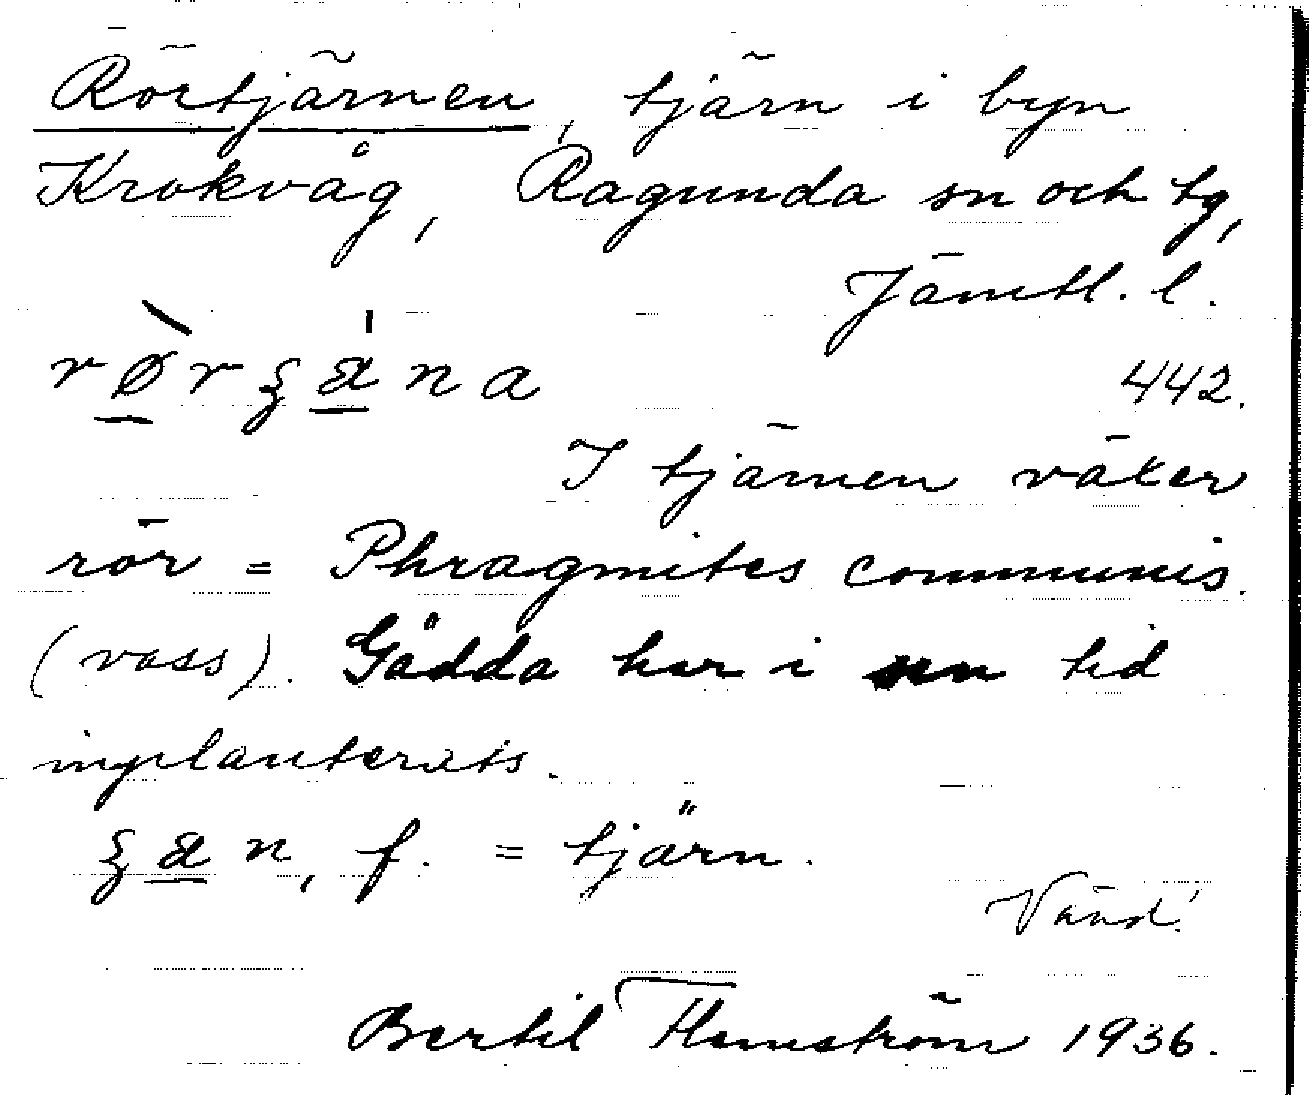 Rörtjärnen, tjärn i byn
Krokvåg, Ragunda sn och tg,
Jämtl. l.
rø̀rʒa̍na
442.
I tjärnen växer
rör = Phragmites communis.
(vass). Gädda har i sin tid
inplanterats.
ʒan, f. = tjärn.
Vänd!
Bertil Flemström 1936.